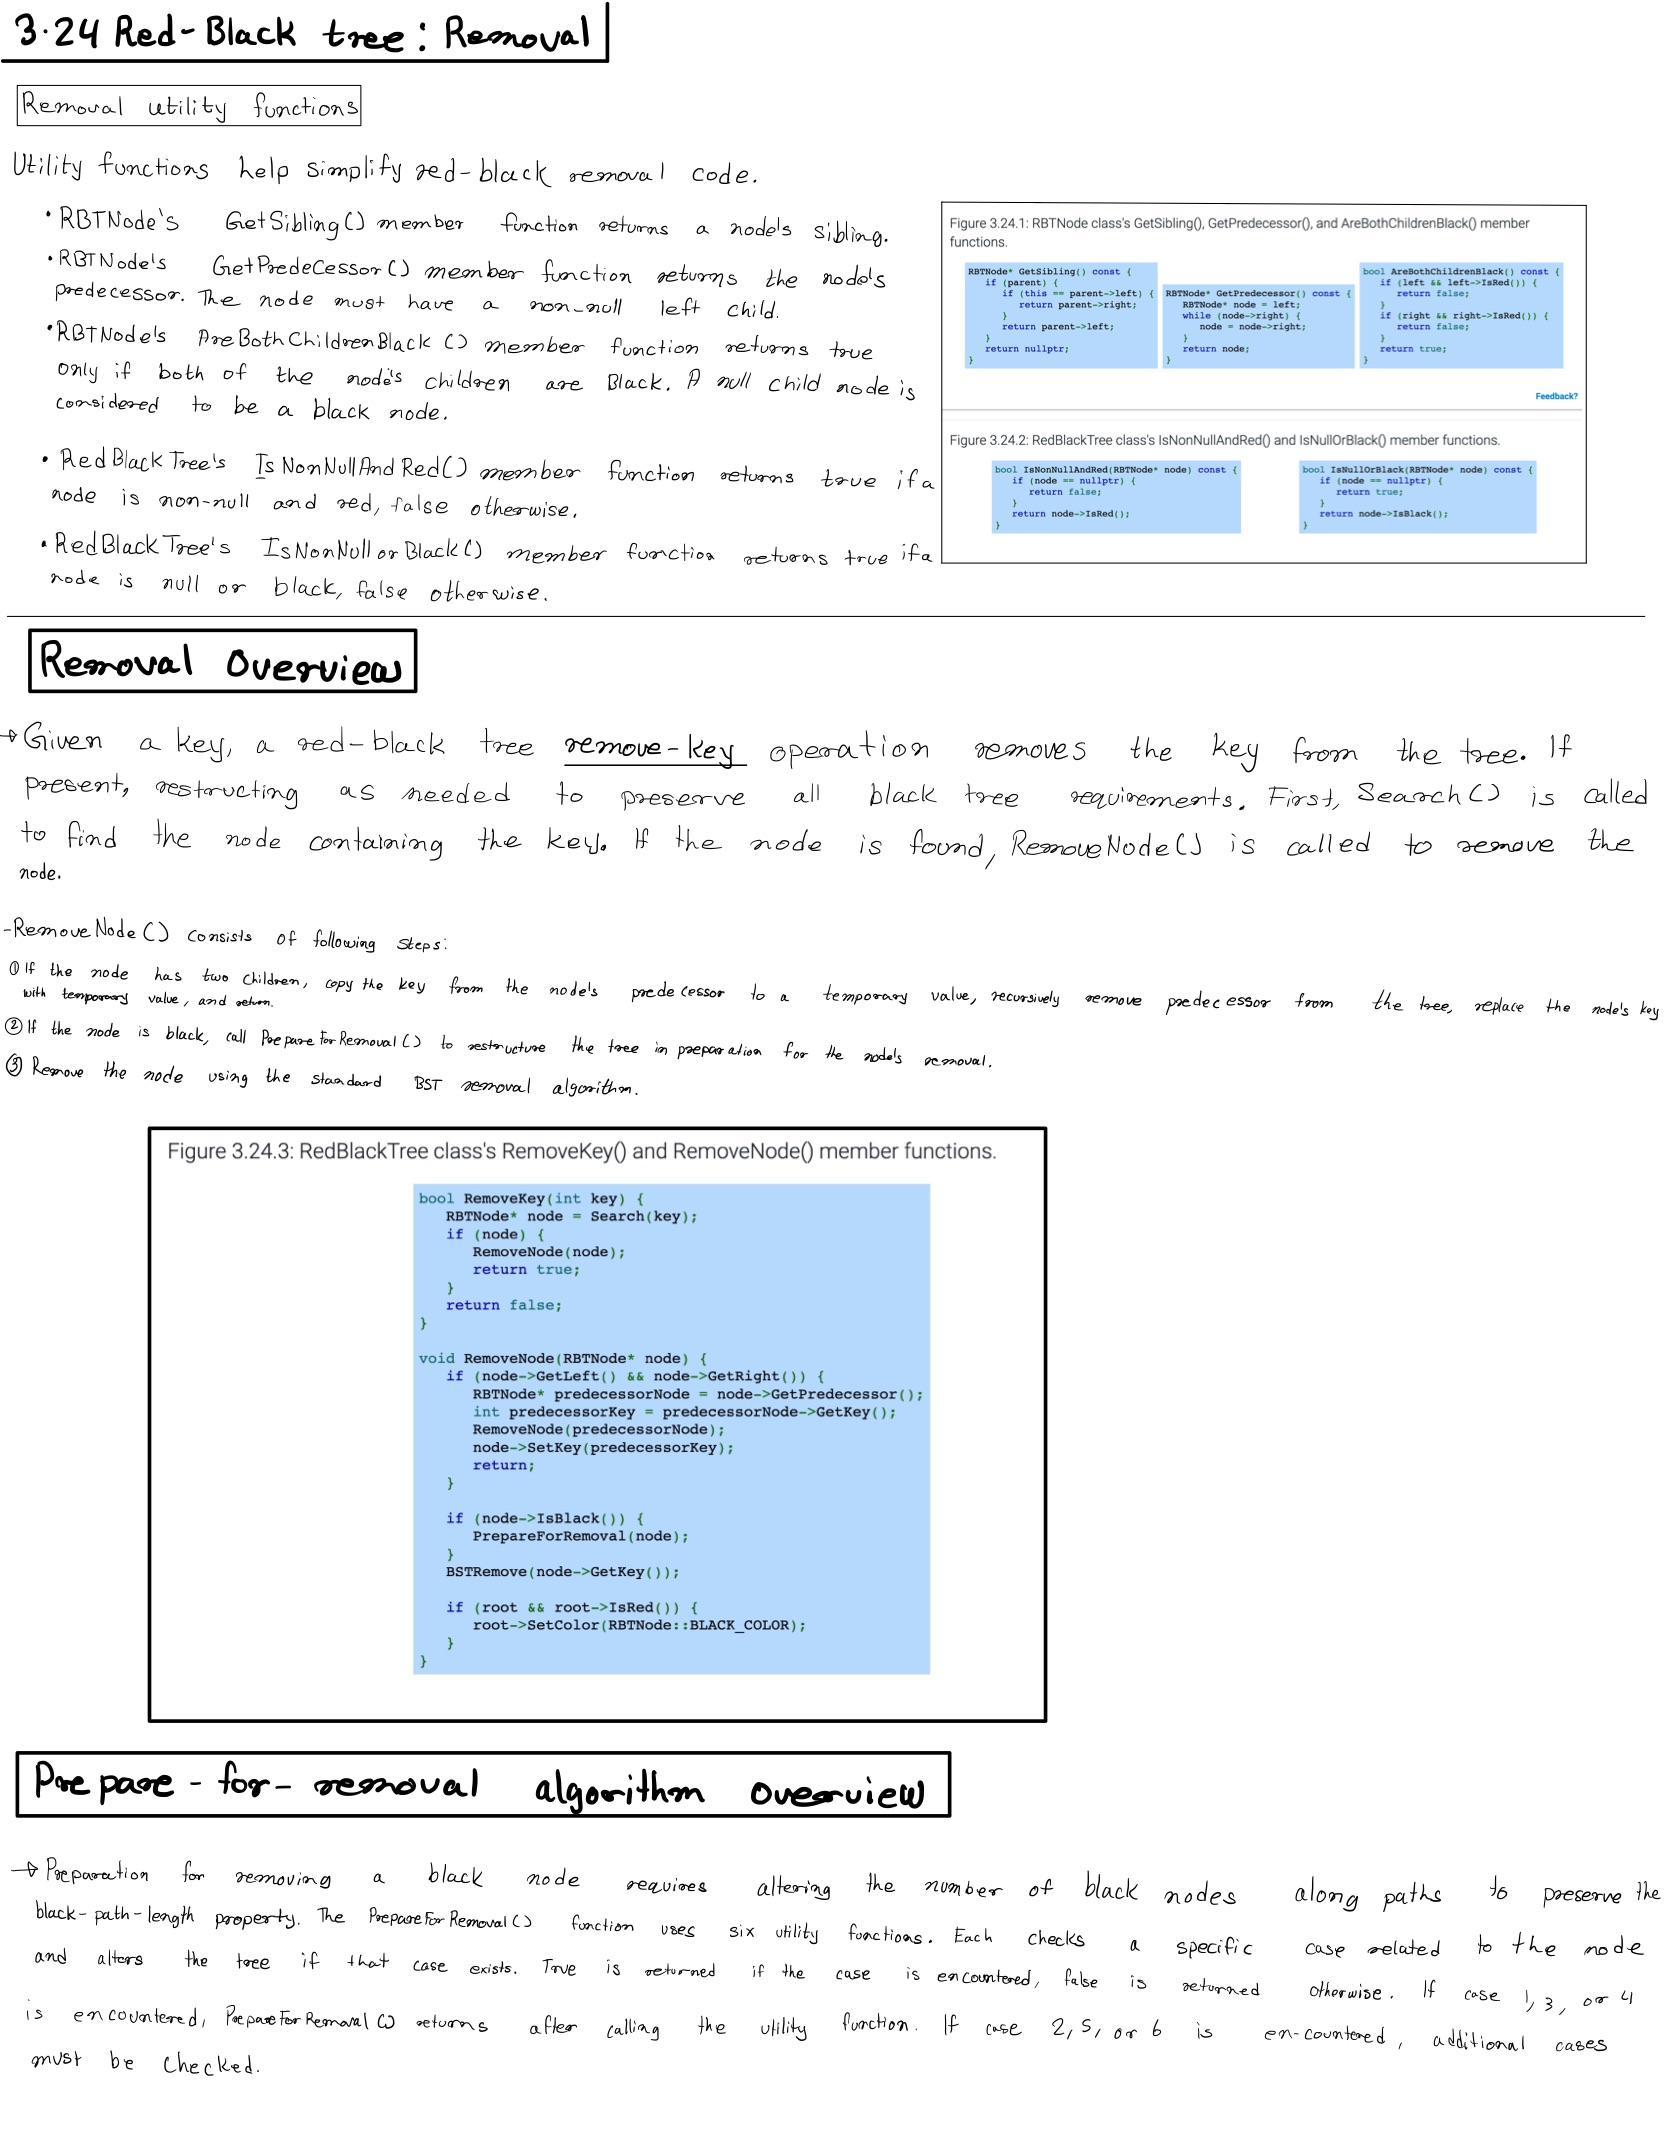 3.24 Red-Black tree: Removal
Removal utility functions
Utility functions help simplify red-black removal code.
• RBTNode's GetSibling() member function returns a node's sibling.
• RBTNode's GetPredecessor() member function returns the node's
predecessor. The node must have a non-null left child.
• RBTNode's AreBothChildrenBlack() member function returns true
only if both of the node's children are Black. A null child node is
considered to be a black node.
• RedBlackTree's IsNonNullAndRed() member function returns true if a
node is non-null and red, false otherwise.
• RedBlackTree's IsNonNullorBlack() member function returns true if a
node is null or black, false otherwise.
Figure 3.24.1: RBTNode class's GetSibling(), GetPredecessor(), and AreBothChildrenBlack() member
functions.
RBTNode* GetSibling() const {
if (parent) {
if (this == parent->left) {
return parent->right;
}
return parent->left;
}
return nullptr;
}
RBTNode* GetPredecessor() const {
RBTNode* node = left;
while (node->right) {
node = node->right;
}
return node;
}
bool AreBothChildrenBlack() const {
if (left && left->IsRed()) {
return false;
}
if (right && right->IsRed()) {
return false;
}
return true;
}
Feedback?
Figure 3.24.2: RedBlackTree class's IsNonNullAndRed() and IsNullOrBlack() member functions.
bool IsNonNullAndRed(RBTNode* node) const {
if (node == nullptr) {
return false;
}
return node->IsRed();
}
bool IsNullOrBlack(RBTNode* node) const {
if (node == nullptr) {
return true;
}
return node->IsBlack();
}
Removal Overview
→ Given a key, a red-black tree remove-key operation removes the key from the tree. If
present, restructing as needed to preserve all black tree requirements. First, Search() is called
to find the node containing the key. If the node is found, RemoveNode() is called to remove the
node.
-RemoveNode() consists of following steps:
① If the node has two children, copy the key from the node's predecessor to a temporary value, recursively remove predecessor from the tree, replace the node's key
with temporary value, and return.
② If the node is black, call PrepareForRemoval() to restructure the tree in preparation for the node's removal.
③ Remove the node using the standard BST removal algorithm.
Figure 3.24.3: RedBlackTree class's RemoveKey() and RemoveNode() member functions.
bool RemoveKey(int key) {
RBTNode* node = Search(key);
if (node) {
RemoveNode(node);
return true;
}
return false;
}
void RemoveNode(RBTNode* node) {
if (node->GetLeft() && node->GetRight()) {
RBTNode* predecessorNode = node->GetPredecessor();
int predecessorKey = predecessorNode->GetKey();
RemoveNode(predecessorNode);
node->SetKey(predecessorKey);
return;
}
if (node->IsBlack()) {
PrepareForRemoval(node);
}
BSTRemove(node->GetKey());
if (root && root->IsRed()) {
root->SetColor(RBTNode::BLACK_COLOR);
}
}
Prepare-for-removal algorithm overview
→ Preparation for removing a black node requires altering the number of black nodes along paths to preserve the
black-path-length property. The PrepareForRemoval() function uses six utility functions. Each checks a specific case related to the node
and alters the tree if that case exists. True is returned if the case is encountered, false is returned otherwise. If case 1, 3, or 4
is encountered, PrepareForRemoval() returns after calling the utility function. If case 2, 5, or 6 is en-countered, additional cases
must be checked.